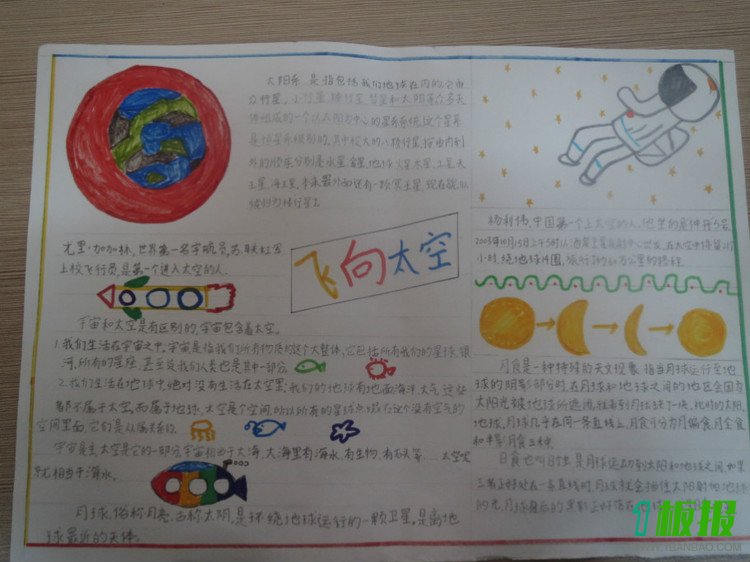 太阳系 是指包括我们地球在内的全由
八行星,小行星,矮行星,彗星和太阳等众多天
体组成的一个以太阳为中心的星系系统,这个星系
是恒星系级别的,其中较大的八极行星,按由内到
外的顺序分别是水星 金星,地球 火星 木星,土星 天
王星,海王星,本来最外面还有一颗冥王星,现在
尤里·加加林,世界第一名宇航员,苏联红军
上校飞行员,是第一个进入太空的人.
飞向太空
杨利伟,中国第一个上太空的人,他坐的是神舟5号,
2003年10月15日上午5时从酒泉卫星发射中心出发,在太空中停留21个
小时,绕地球14圈,旅行了60万公里的路程.
宇宙和太空是有区别的,宇宙包含着太空.
1.我们生活在宇宙之中,宇宙是指我们所有物质构这个大整体,它包括所有我们的星球,银
河,所有的星座,甚至说我们人类也是其中一部分
2.我们生活在地球中,绝对没有生活在太空里,我们的地球有地面海洋,大气,这些
都不属于太空,而属于地球,太空是个空间,所以所有的星球点缀在这个没有空气的
空间里面,它们是从属关系.
宇宙是主太空是它的一部分宇宙相当于大海,大海里有海水,有生物,有石头等……太空
就相当于海水.
月球,俗称月亮,古称太阴,是环绕地球运行的一颗卫星,是离地
球最近的天体.
月食是一种特殊的天文现象,指当月球运行至地
球的阴影部分时,在月球和地球之间的地区会因为
太阳光被地球所遮蔽,就看到月球缺了一块,此时的太阳,
地球,月球几乎在同一条直线上,月食可分为月偏食,月全食
和半影月食三种.
日食也叫日蚀,是月球运动到太阳和地球之间,如果
三者正好处在一条直线时,月球就会挡住太阳射向地球
的光,月球身后的黑影正好落在
板报
WWW.1BANBAO.COM